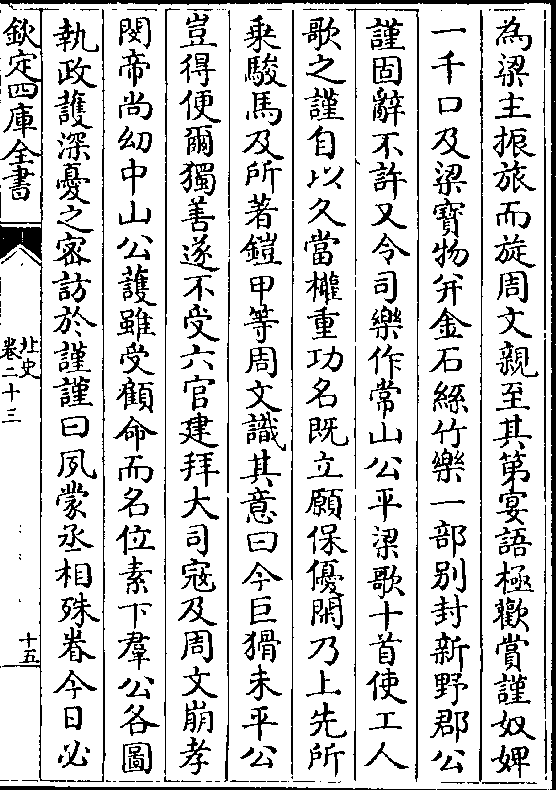 為梁主振旅而旋周文親至其第宴語極歡賞謹奴婢
一千口及梁寶物并金石絲竹樂一部别封新野郡公
謹固辭不許又令司樂作常山公平梁歌十首使工人
歌之謹自以久當權重功名既立願保優閑乃上先所
乗駿馬及所著鎧甲等周文識其意曰今巨猾未平公
豈得便爾獨善遂不受六官建拜大司寇及周文崩孝
閔帝尚幼中山公護雖受顧命而名位素下羣公各圖
執政護深憂之宻訪於謹謹曰夙蒙丞相殊眷今日必
欽定四庫全書
北史
卷二十三
十五